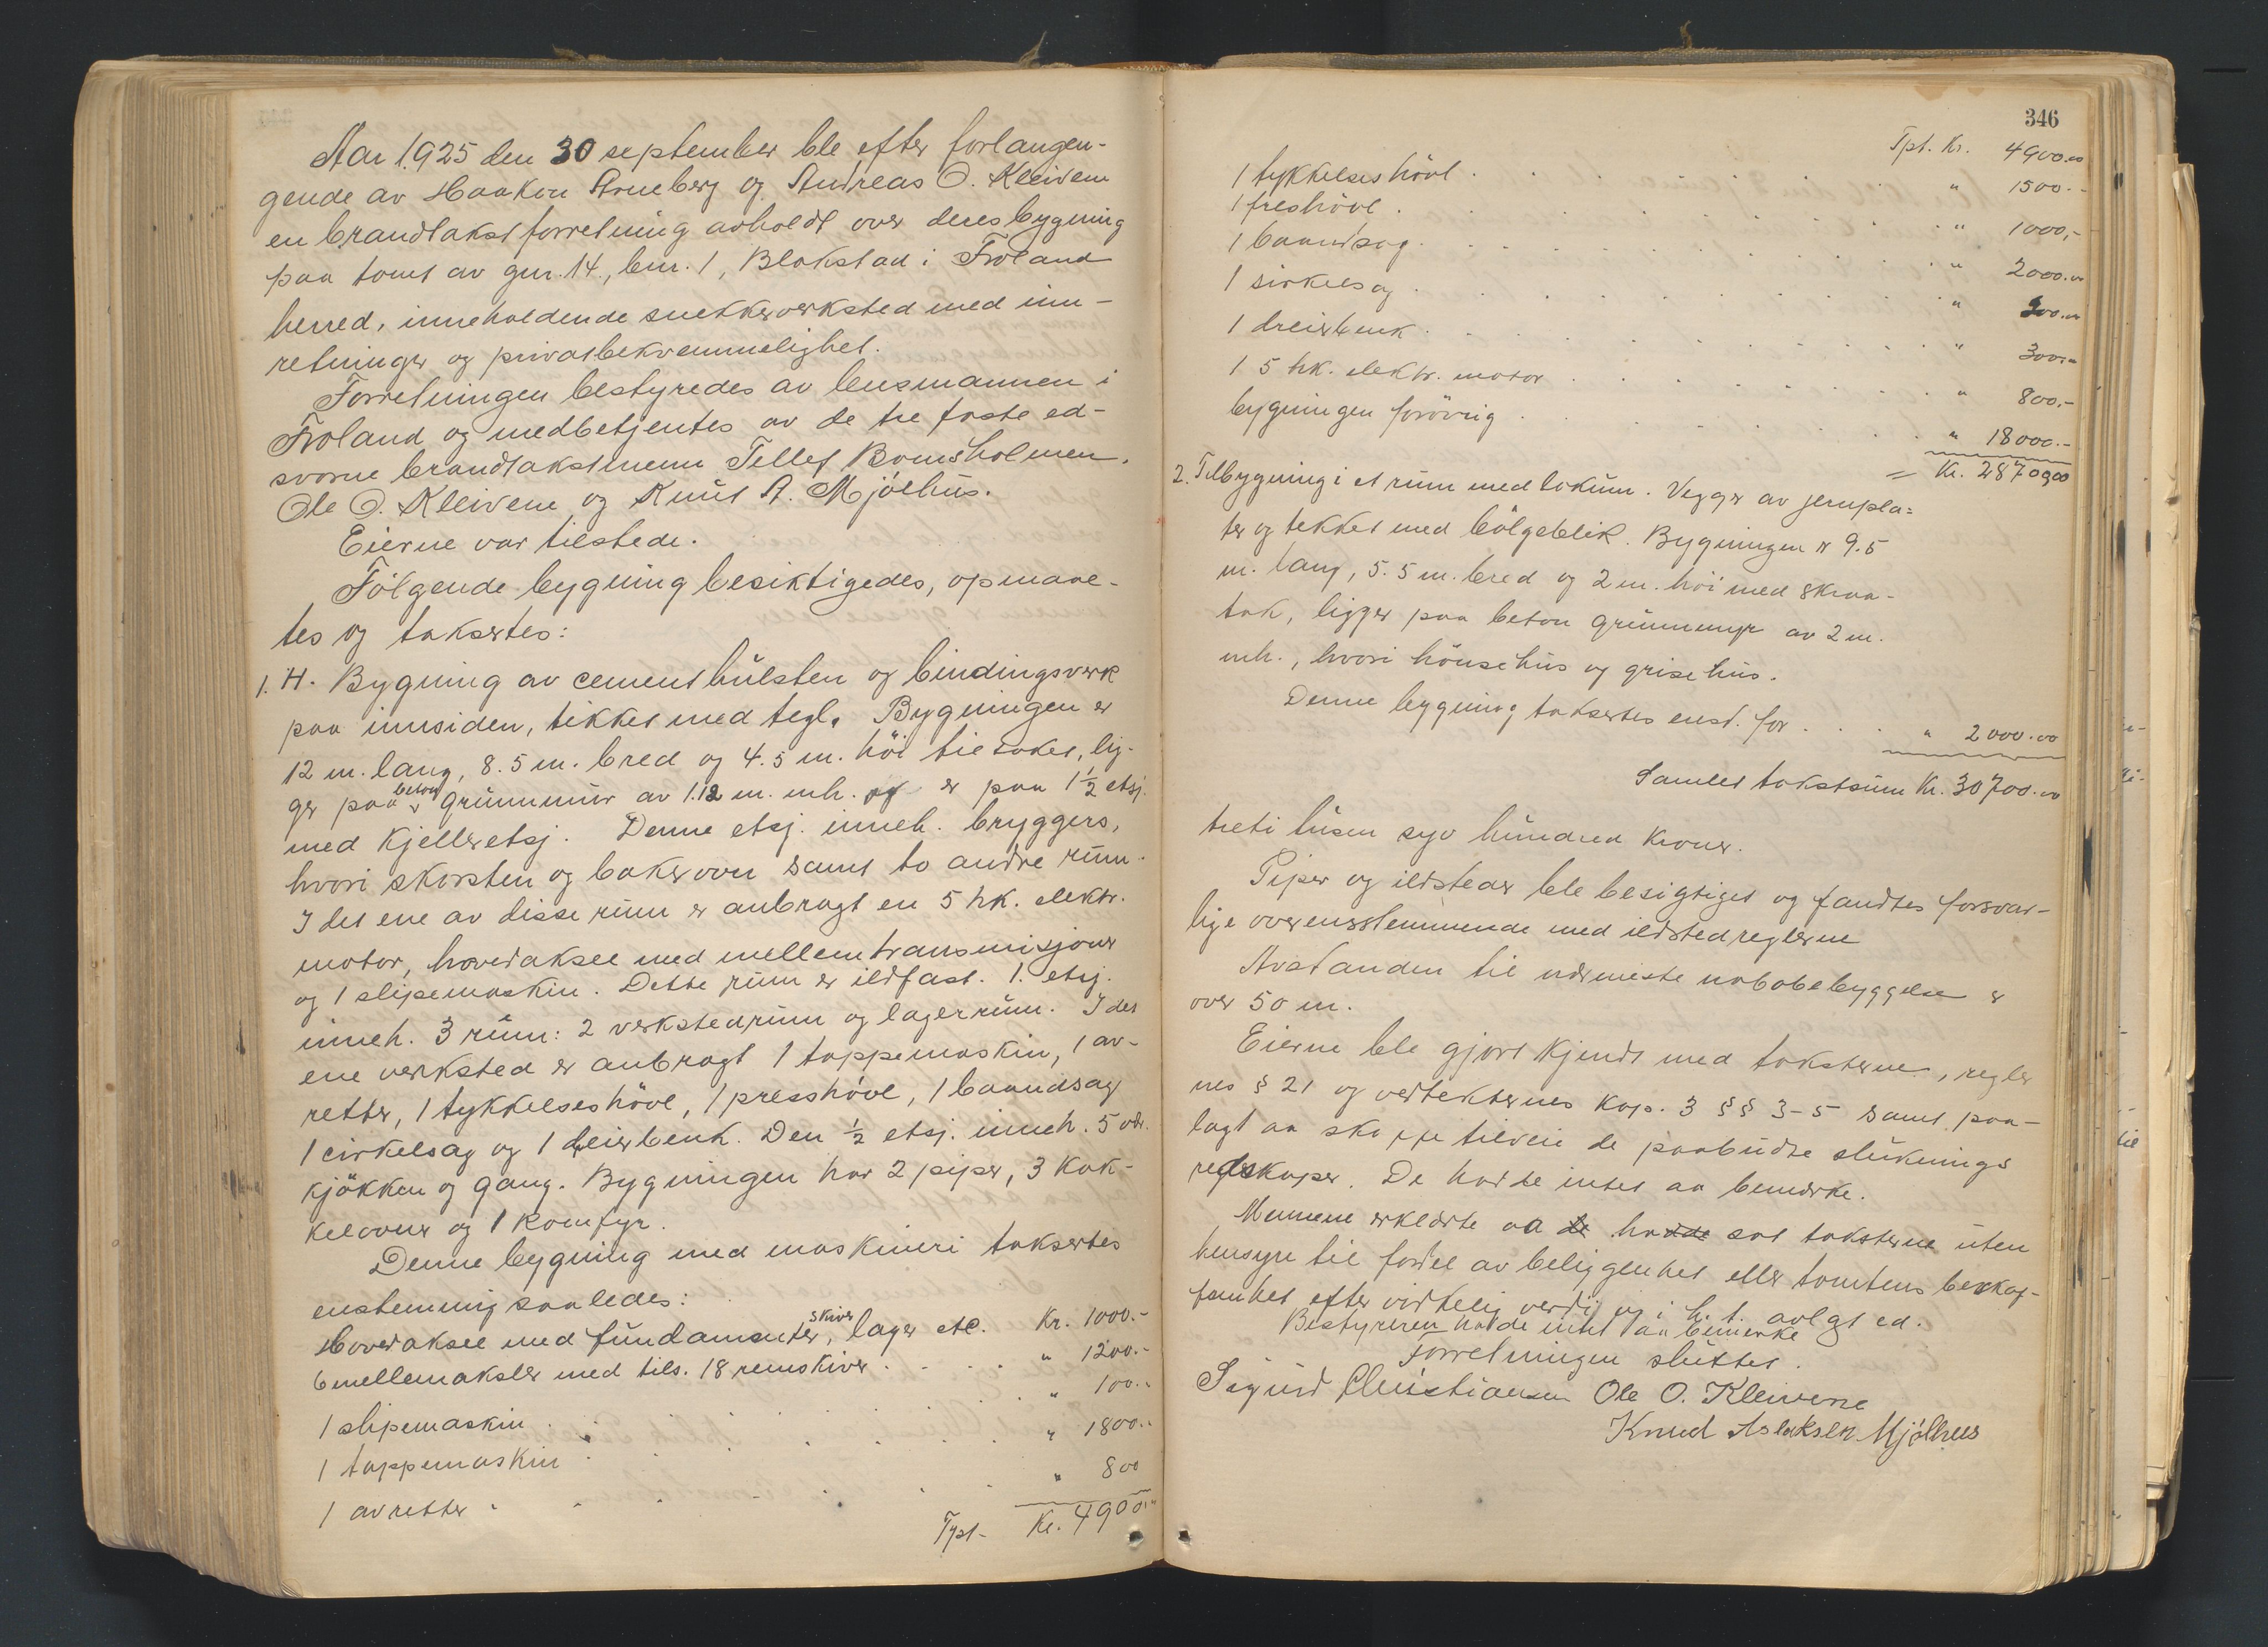 Aar 1925 den 30 september ble efter forlangen-
gende av Haakon Arneberg og Andreas O. Kleivene
en brandtakst forretning avholdt over deres bygning
paa tomt av gnr. 14., bnr. 1, Blakstad i Froland
herred, inneholdende snekkerverksted med inn-
retninger og privatbekvemmelighet.
Forretningen bestyredes av lensmannen i
Froland og medbetjentes av de tre faste ed-
svorne brandtakstmenn Tellef Bomsholmen.
Ole O. Kleivene og Knut A. Mjølhus.
Eierne var tilstede.
Følgende bygning besiktigedes, opmaae-
tes og taksertes:
1. H. Bygning av cementhulsten og bindingsverk
paa innsiden, tekket med tegl. Bygningen er
12 m. lang, 8.5 m. bred og 4.5 m. høi til taket, lig-
ger paa beton grunnmur av 1.12 m. mh. og er paa 1½ etsj.
med kjelleretsj. Denne etsj. inneh. bryggers,
hvori skorsten og bakerovn samt to andre rum.
I det ene av disse rum er anbragt en 5 hk. elektr.
motor, hovedaksel med mellemtransmisjoner
og 1 slipemaskin. Dette rum er ildfast. 1. etsj.
inneh. 3 rum: 2 verkstedrum og lagerrum. I det
ene verksted er anbragt 1 tappemaskin, 1 av-
retter, 1 tykkelseshøvl, 1 presshøvl, 1 baandsag
1 cirkelsag og 1 dreierbenk. Den ½ etsj. inneh. 5 vær.
kjøkken og gang. Bygningen har 2 piper, 3 kak-
kelovner og 1 komfyr.
Denne bygning med maskineri taksertes
enstemmig saaledes:
Hovedaksel med fundamenter, skiver lager etc. Kr. 1000.-
6 mellemaksler med tils. 18 remskiver . . . " 1200.-
1 slipemaskin . . . " 100.-
1 tappemaskin . . . " 1800.-
1 avretter . . . " 800
Tpt- Kr. 4900.00
346
Tpt. Kr. 4900.00
1 tykkelseshøvl . . . " 1500.-
1 freshøvl . . . " 1000,-
1 baandsag . . . " 2000.00
1 sirkelsag . . . " 200.00
1 dreierbenk . . . " 300.00
1 5 hk. elektr. motor . . . " 800,-
bygningen forøvrig . . . " 18000.-
= Kr. 28700,00
2. Tilbygning i et rum med lokum. Vegger av jernpla=
ter og tekket med bølgeblik. Bygningen er 9.5
m. lang, 5.5 m. bred og 2 m. høi med skraa-
tak, ligger paa beton grunnmyr av 2 m.
mh., hvori hønsehus og grisehus.
Denne bygning taksertes enst. for . . . " 2000.00
Samlet takstsum Kr. 30700.00
treti tusen syv hundred kroner.
Piper og ildsteder ble besigtiget og fandtes forsvar-
lige overensstemmende med ildstedreglerne
Avstanden til nærmeste nabobebyggelse er
over 50 m.
Eierne ble gjort kjendt med taksterne, regler
nes § 21 og vedtekternes kap. 3 §§ 3-5 samt paa-
lagt aa skaffe tilveie de paabudte sluknings
redskaper. De hadde intet aa bemerke.
Mennene erklærte aa de hadde sat taksterne uten
hensyn til fordel av beliggenhet eller tomtens beskaf-
fenhet efter virkelig verdi og i h. t. avlgt ed.
Bestyreren hadde intet aa bemerke
Forretningen sluttet.
Sigurd Christiansen Ole O. Kleivene
Knud Aslaksen Mjølhus